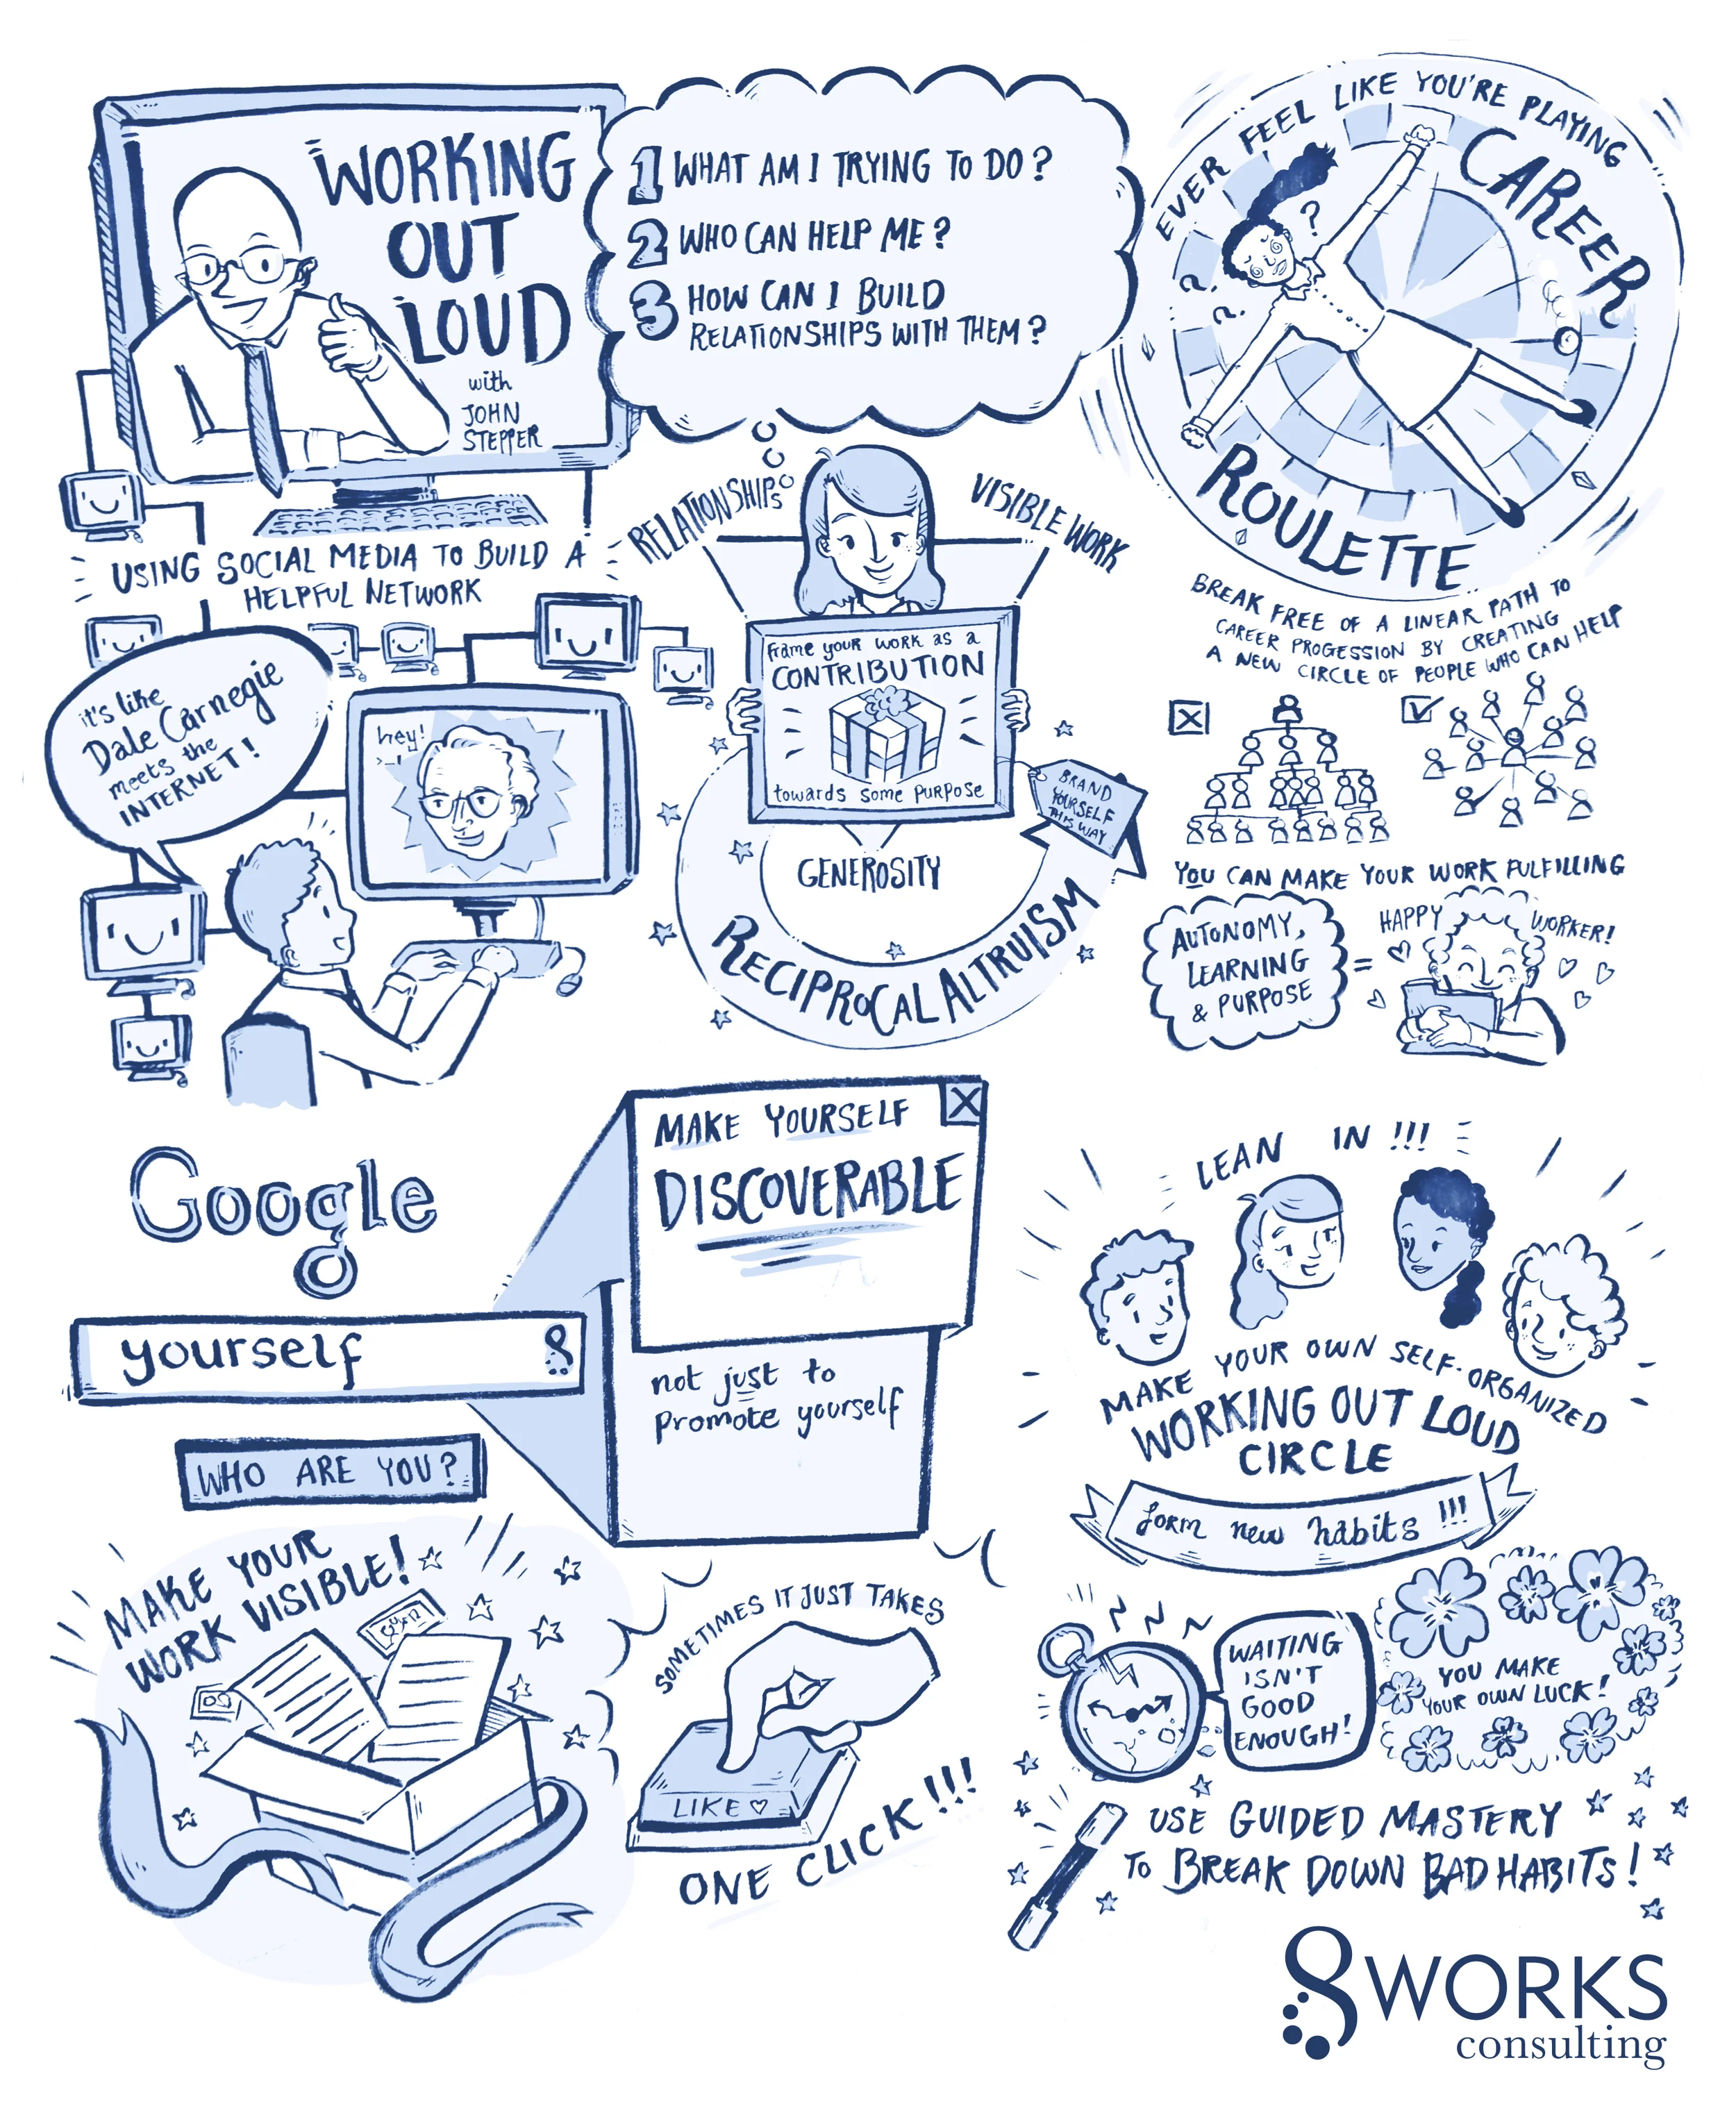 WORKING
OUT
LOUD
with
JOHN
STEPPER
1 WHAT AM I TRYING TO DO?
2 WHO CAN HELP ME?
3 HOW CAN I BUILD
RELATIONSHIPS WITH THEM?
EVER FEEL LIKE YOU'RE PLAYING
CAREER
ROULETTE
? ? ?
USING SOCIAL MEDIA TO BUILD A
HELPFUL NETWORK
it's like
Dale Carnegie
meets the
INTERNET!
hey!
RELATIONSHIPS
VISIBLE WORK
frame your work as a
CONTRIBUTION
towards some purpose
BRAND
YOURSELF
THIS WAY
GENEROSITY
RECIPROCAL ALTRUISM
BREAK FREE OF A LINEAR PATH TO
CAREER PROGESSION BY CREATING
A NEW CIRCLE OF PEOPLE WHO CAN HELP
YOU CAN MAKE YOUR WORK FULFILLING
AUTONOMY,
LEARNING
& PURPOSE
=
HAPPY WORKER!
Google
yourself
8
WHO ARE YOU?
X
MAKE YOURSELF
DISCOVERABLE
not just to
promote yourself
LEAN IN!!!
MAKE YOUR OWN SELF-ORGANIZED
WORKING OUT LOUD
CIRCLE
form new habits!!!
MAKE YOUR
WORK VISIBLE!
SOMETIMES IT JUST TAKES
LIKE ♡
ONE CLICK!!!
WAITING
ISN'T
GOOD
ENOUGH!
YOU MAKE
YOUR OWN LUCK!
USE GUIDED MASTERY
TO BREAK DOWN BAD HABITS!
8WORKS
consulting